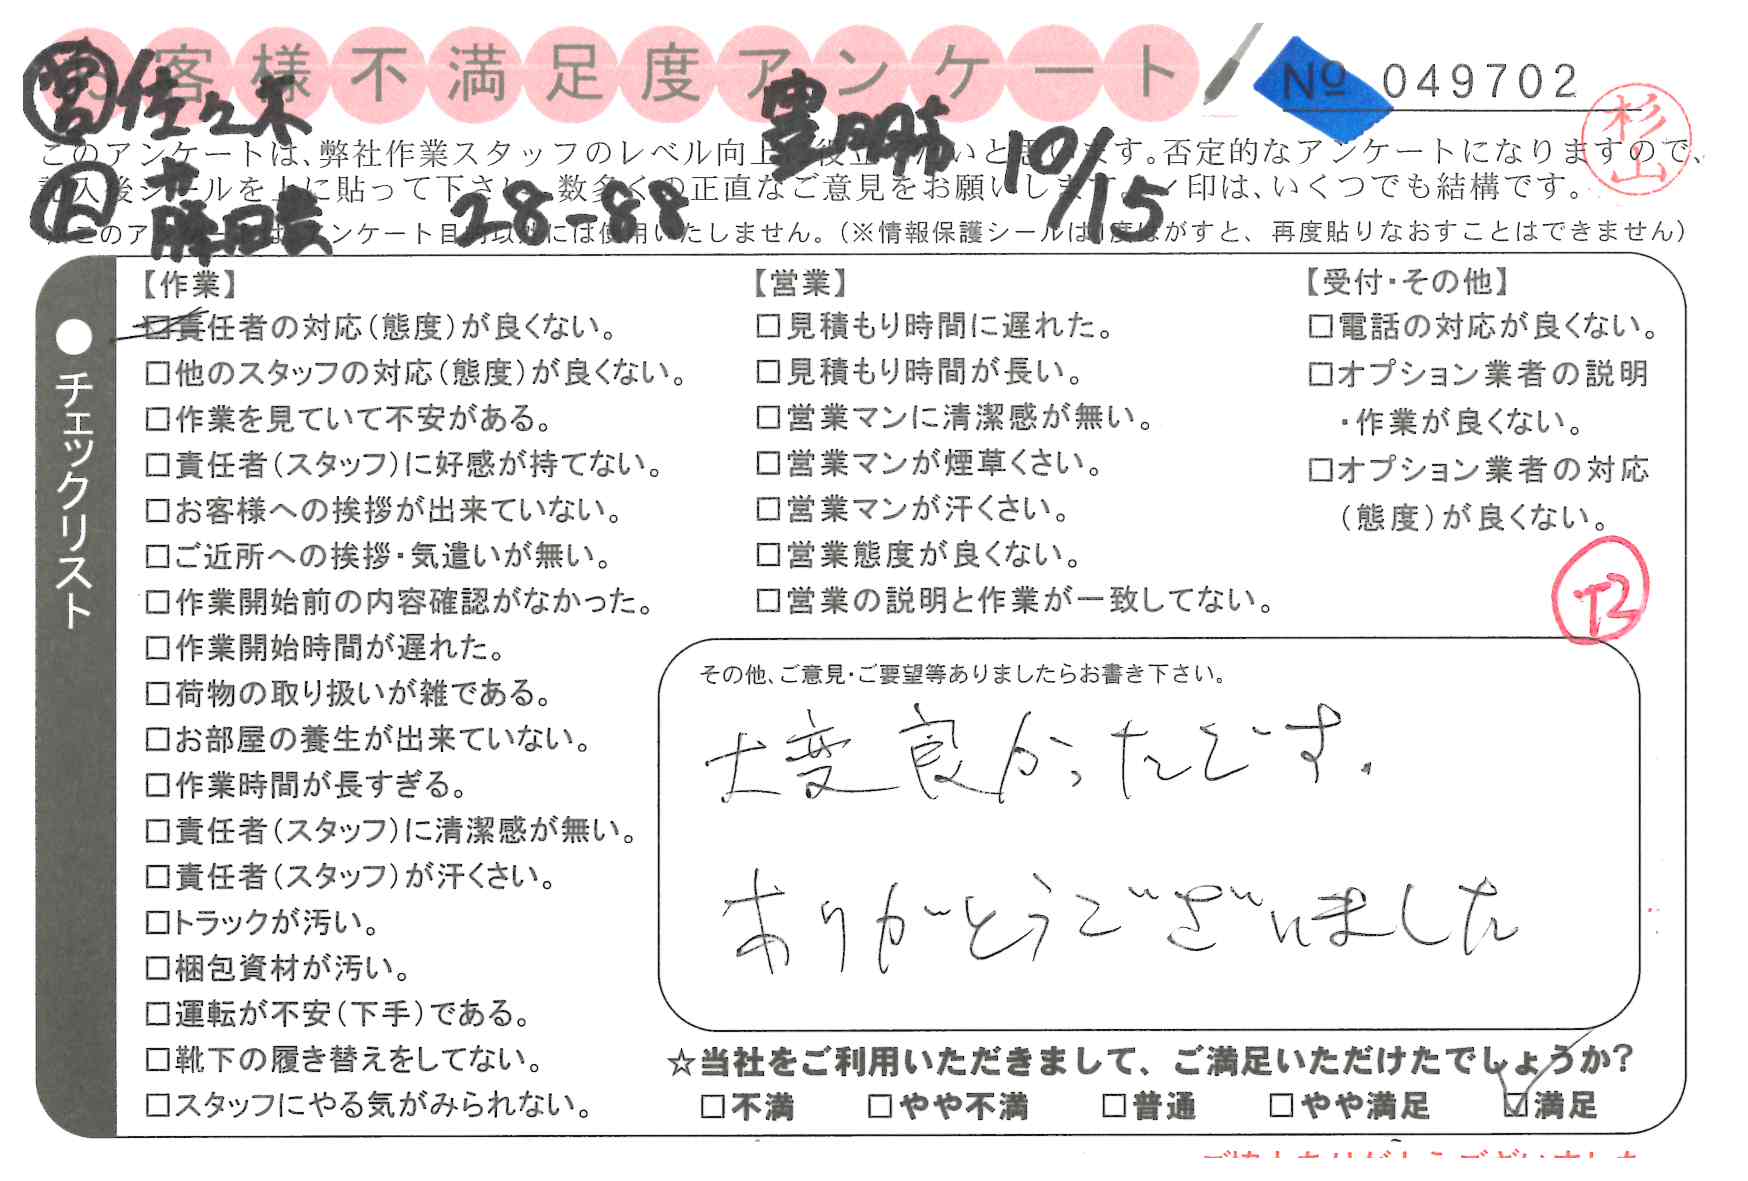 客様不満足度アンケート
№ 049702
杉山
佐々木
豊明市
10/15
28-88
このアンケートは、弊社作業スタッフのレベル向上
す。否定的なアンケートになりますので、
記入後シールを上に貼って下さい。数多くの正直なご意見をお願いします。✓印は、いくつでも結構です。
※このアンケートはアンケート目的以外には使用いたしません。(※情報保護シールは1度はがすと、再度貼りなおすことはできません)
●チェックリスト
【作業】
□責任者の対応(態度)が良くない。
□他のスタッフの対応(態度)が良くない。
□作業を見ていて不安がある。
□責任者(スタッフ)に好感が持てない。
□お客様への挨拶が出来ていない。
□ご近所への挨拶・気遣いが無い。
□作業開始前の内容確認がなかった。
□作業開始時間が遅れた。
□荷物の取り扱いが雑である。
□お部屋の養生が出来ていない。
□作業時間が長すぎる。
□責任者(スタッフ)に清潔感が無い。
□責任者(スタッフ)が汗くさい。
□トラックが汚い。
□梱包資材が汚い。
□運転が不安(下手)である。
□靴下の履き替えをしてない。
□スタッフにやる気がみられない。
【営業】
□見積もり時間に遅れた。
□見積もり時間が長い。
□営業マンに清潔感が無い。
□営業マンが煙草くさい。
□営業マンが汗くさい。
□営業態度が良くない。
□営業の説明と作業が一致してない。
【受付・その他】
□電話の対応が良くない。
□オプション業者の説明
・作業が良くない。
□オプション業者の対応
(態度)が良くない。
T2
その他、ご意見・ご要望等ありましたらお書き下さい。
大変良かったです.
ありがとうございました
☆当社をご利用いただきまして、ご満足いただけたでしょうか?
□不満 □やや不満 □普通 □やや満足 ☑満足